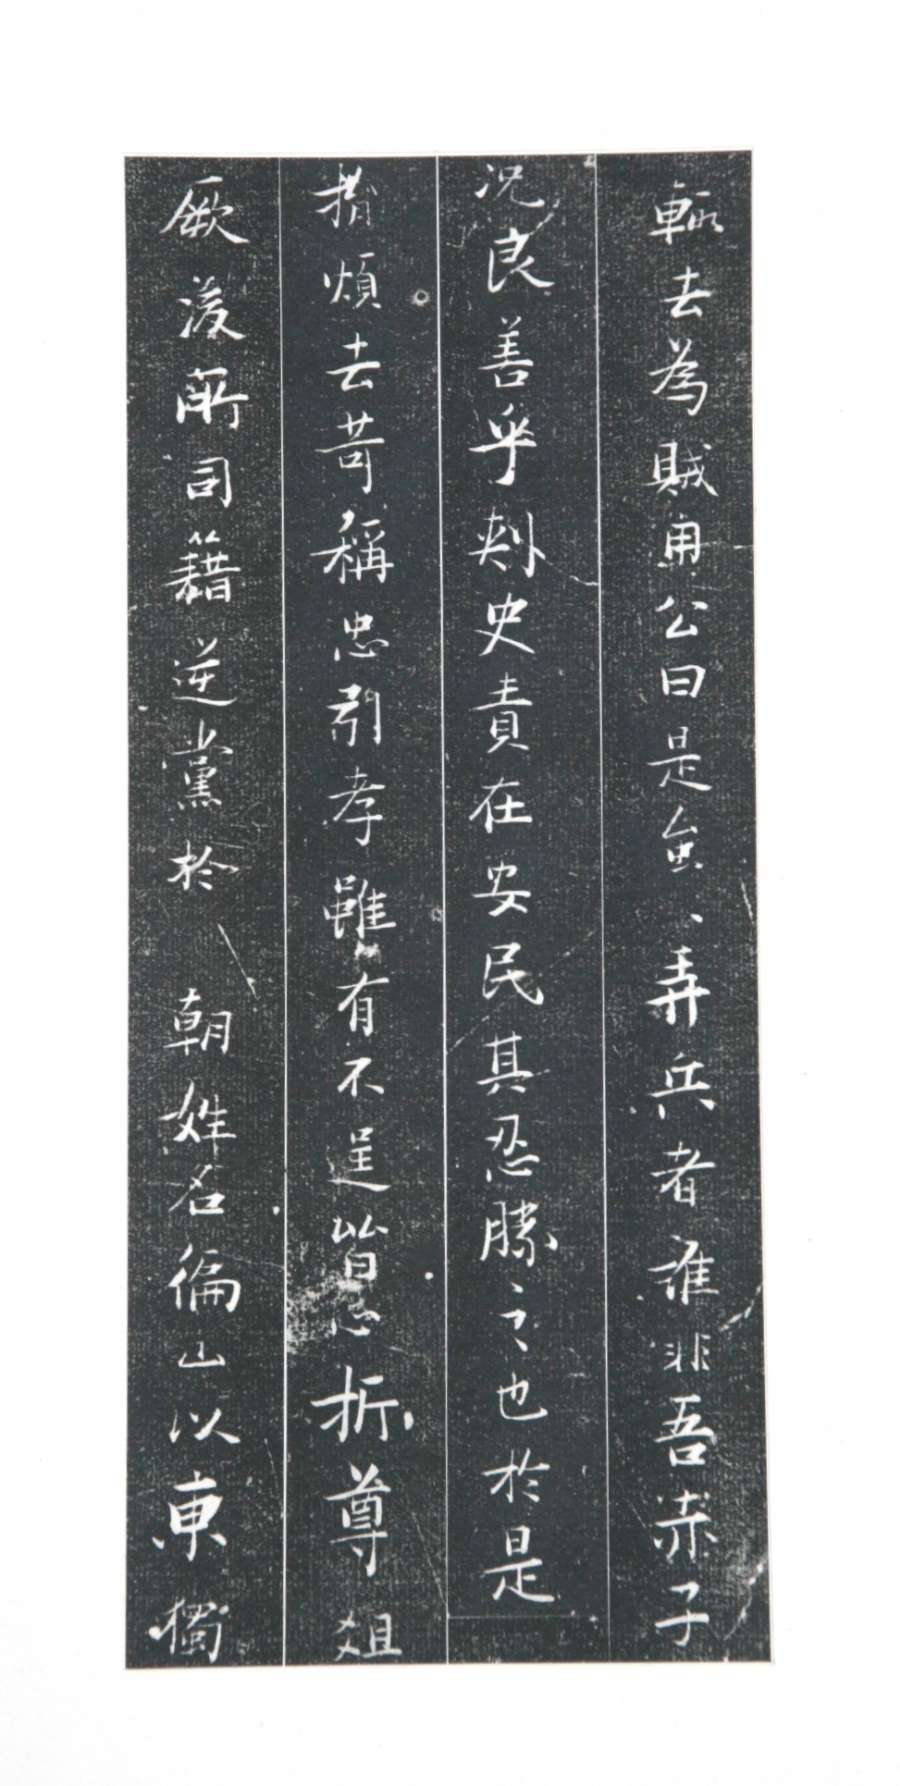 輙去為賊用公曰是蚩〻弄兵者誰非吾赤子
况良善乎刾史責在安民其忍勝之也於是
捐煩去苛稱忠引孝雖有不逞皆心折尊俎
厥後所司籍逆黨於　朝姓名徧山以東獨